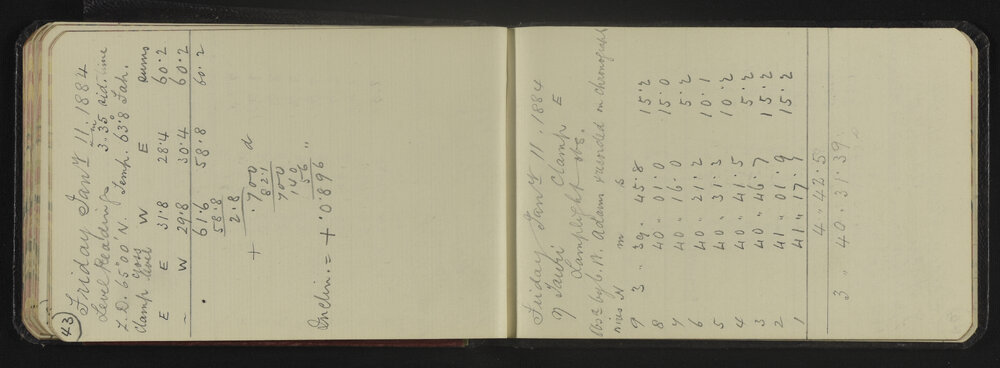 43
Friday Jany 11. 1884
Level Readings 3h 35m sid. time
Z. D. 65°00' N. Temp. 63°.8 Fah.
Clamp level W E sums
E E 31.8 28.4 60.2
" W 29.8 30.4 60.2
61.6 58.8 60.2
58.8
2.8
+ .700 d
821
700
140
56
Inclin. = + 0.896 "
Friday Jany 11. 1884
η Tauri Clamp E
Lamplight obs.
Obsd by C. N. Adams recorded on chronograph
wires h m s
9 3 " 39. 45.8 15.2
8 40 " 01.0 15.0
7 40 " 16.0 5.2
6 40 " 21.2 10.1
5 40 " 31.3 10.2
4 40 " 41.5 5.2
3 40 " 46.7 15.2
2 41 " 01.9 15.2
1 41 " 17.1
4 " 42.5
3 " 40 " 31.39